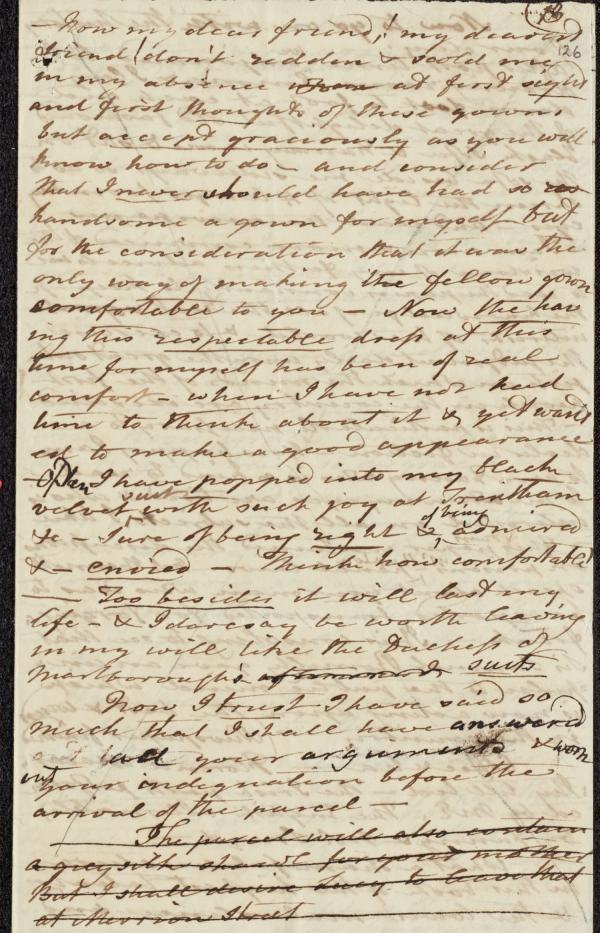 126
– Now my dear friend,! my dearest
friend! don't redden & scold me
in my absence at first sight
and first thoughts of these gowns
but accept graciously as you will
know how to do – and consider
that I never should have had so
handsome a gown for myself but
for the consideration that it was the
only way of making the fellow gown
comfortable to you – Now the hav
ing this respectable dress at this
time for myself has been of real
comfort – when I have not had
time to think about it & yet want
ed to make a good appearance
– Often I have popped into my black
velvet suit with such joy at Trentham
&c – Sure of being right & of being admired
& – envied – Think how comfortable!
— Too besides it will last my
life – & I daresay be worth leaving
in my will like the Duchess of
Marlborough's afterwards suits
Now I trust I have said so
much that I shall have answered
all your arguments & worn
out your indignation before the
arrival of the parcel –
The parcel will also contain
a grey silk shawl for your mother
But I shall desire Lucy to leave that
at Merrion Street